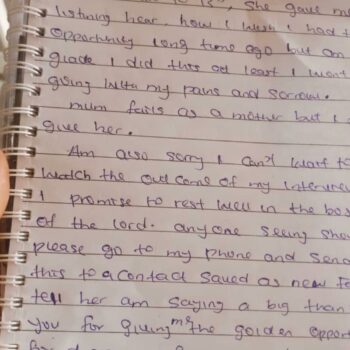 to is", she gave me
listining hear, how I wish I had t
opportunity long time ago but am
glade I did this at least I wont
going with my pans and sorrow.
mum fails as a mother but I
give her.
Am also sorry I can't wait to
watch the out come of my interview
I promise to rest well in the bos
of the lord. anyone seeing shou
please go to my phone and send
this to a contact saved as new fr
tell her am saying a big than
you for giving me the golden opport